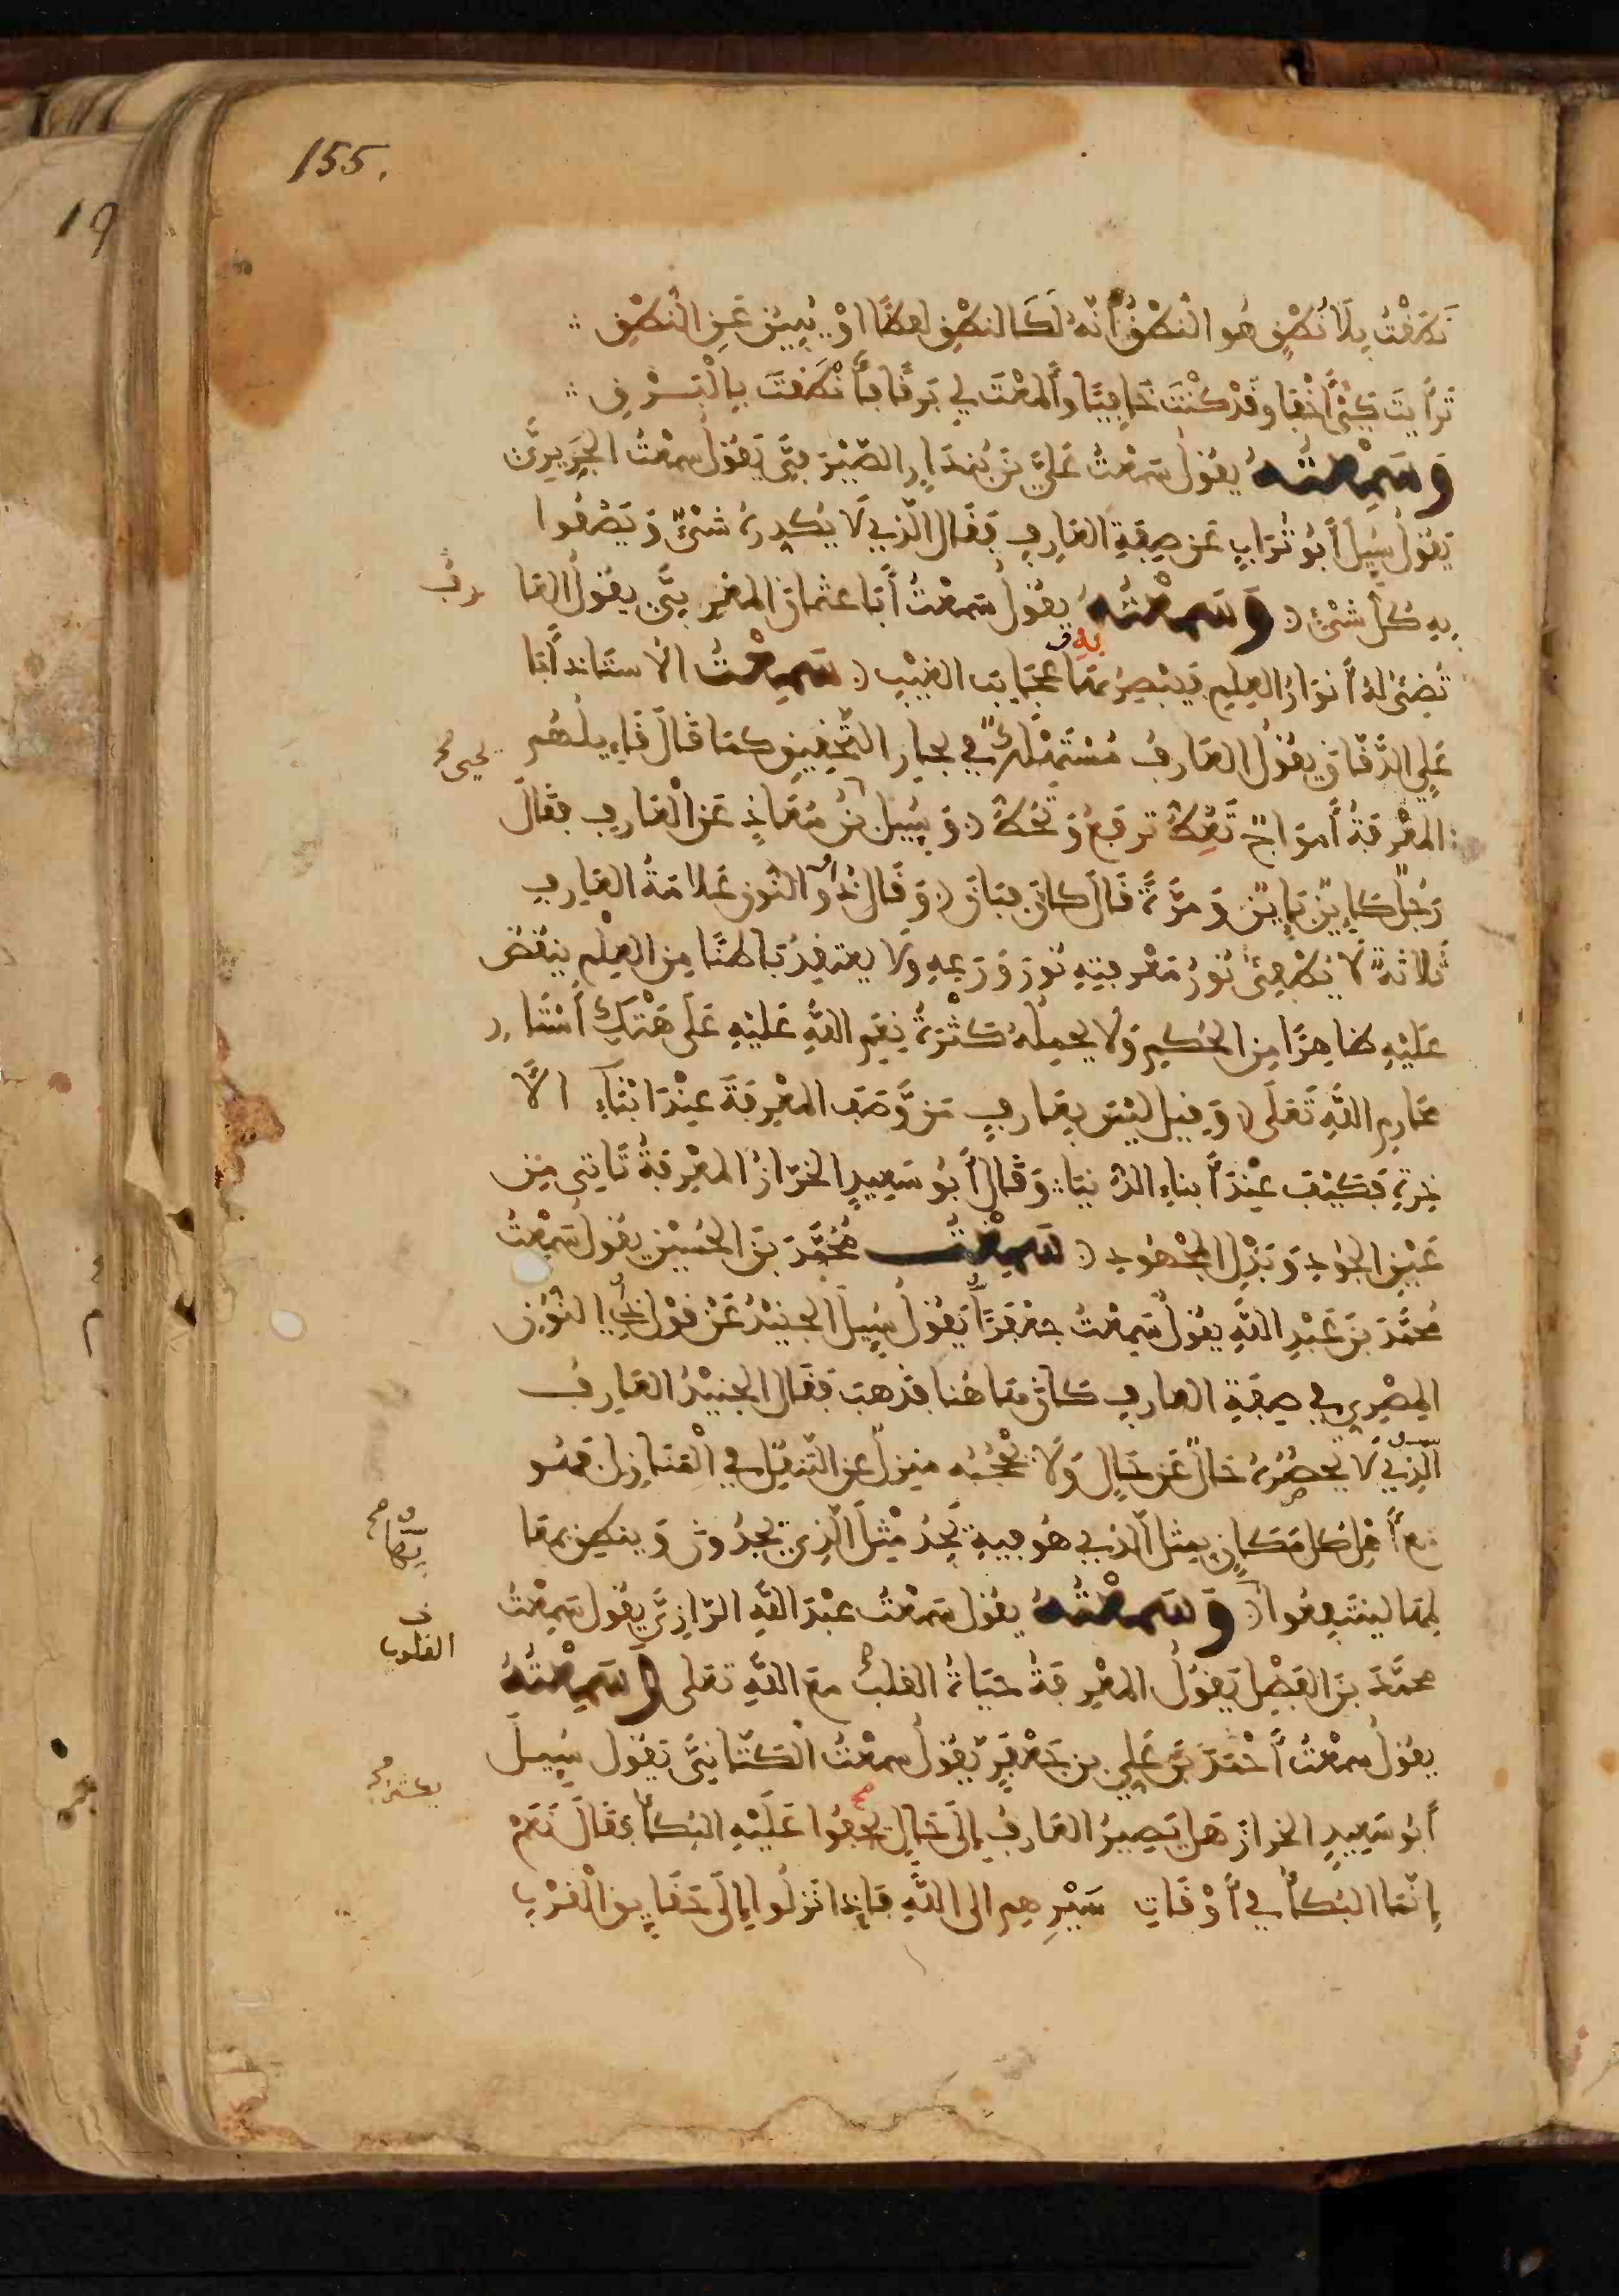 155.
19
نَطَقْتُ بِلَا نُطْقٍ هُو النُّطْقُ أَنَّهُ لَكَ النطْقِ لفظًا اوْ يُبِينُ عَنِ النُّطْقِ
تَرَأَيتَ كَيْ أَخْفَا وَقَدْ كُنْتَ خَافِيًا وأَلمَعْتَ لِي بَرقًا فَأَنْطَقتَ بِالْبَرْقِ
وَسَمِعْتُهُ يقول سَمعْتُ عَلِيَّ بْنَ بُندَارِ الصَّيْرَفِيَّ يَقُولُ سمعْتُ الجَرِيرِيَّ
يَقُول سُيِلَ أَبُو تُرَابٍ عَن صِفَةِ العَارِفِ فَقَال الَّذِي لَا يُكَدِّرُهُ شَيْءٌ وَيَصْفُوا
بِهِ كُلُّ شَيْءٍ وَسَمِعْتُهُ يقُول سَمعْتُ أَبَا عثمان المغرِبيَّ يقُولُ العَا
رِفُ
تُضِيءُ لهُ أَنوَارُ العِلمِ فَيُبْصِرُ بهَا عَجَايِبَ الغَيْبِ سَمِعْتُ الأُستَاذ أَبَا
بِهِ ف
عَلِي الدَّقَّاق يقُولُ العَارِفُ مُسْتَهْلَكٌ فِي بحَارِ التَّحْقِيقِ كمَا قَالَ قَايِلُهُم
يحيى
المَعْرِفَةُ أَموَاجٌ تَغُطُّ تَرفَعُ وَتحُطُّ وَسُيِلَ بْنُ مُعَاذٍ عَنِ الْعَارِفِ فقَالَ
رَجُلٌ كَايِنٌ بَايِنٌ وَمَرَّةً قَالَ كانَ فبَانَ وَقَالَ ذُو النُّونِ عَلامَةُ العَارِفِ
ثَلاثَةٌ لَا يُطْفِئُ نُورُ مَعْرِفَتِهِ نُورَ وَرَعِهِ وَلا يعتَقِدُ بَاطنًا مِنَ العِلْمِ ينقُضُ
عَلَيْهِ ظاهِرًا مِنَ الحُكْمِ وَلا يحمِلُهُ كَثْرَةُ نِعَمِ اللَّهِ عَلَيْهِ عَلَى هَتْكِ أَسْتَارِ
محَارِمِ اللَّهِ تَعَلَى وَقِيلَ لَيْسَ بِعَارِفٍ مَنْ وَّصَفَ المَعْرِفَةَ عِنْدَ ابْنَاءِ الأَ
خِرَةِ فَكَيْفَ عِنْدَ أَبناءِ الدُّنيَا وَقَالَ أَبُو سَعِيدٍ الخَرَّازُ المَعْرِفَةُ تَاتِي مِن
عَيْنِ الجُودِ وَبَذْلِ المَجْهُودِ سَمِعْتُ مُحَمَّدَ بنَ الحُسَيْنِ يقُول سَمِعْتُ
مُحَمَّدَ بنَ عَبْدِ اللَّهِ يقُول سَمِعْتُ جعْفَرًا يَّقُولُ سُيِلَ الجُنَيْدُ عَنْ قَوْلِ ذِي النُّونِ
المِصْرِيِ فِي صِفَةِ العارِفِ كَانَ هَا هُنا فذَهبَ فَقَال الجُنَيْدُ العَارِفُ
الَّذِي لَا يحصُرُهُ حَالٌ عَن حَالٍ وَلَا يحْجُبُه منزِلٌ عن التَّنَقُّلِ في الْمَنَازِلِ فَهُو
مَعَ أَهْلِ كُلِّ مَكانٍ بِمِثْلِ الَّذِي هُوَ فِيهِ يَجِدُ مِثْلَ الَّذِي يَجِدُونَ وَينطِقُ بمَعَا
لِمهَا لينتفِعُوا وَسَمِعْتُهُ يقُول سَمِعْتُ عَبْدَ اللَّهِ الرَّازِيَّ يقُول سَمِعْتُ
القلوب
محمَّدَ بنَ الفَضْلِ يَقُولُ المَعْرِفَةُ حَيَاةُ القلبِ مَعَ اللَّهِ تعَلى وَسَمِعْتُهُ
يقُولُ سمعْتُ أَحْمَدَ بنَ عَلِيِ بن جَعْفَرٍ يَّقُول سمعْتُ الْكَتَّانِيَّ يَقُول سُيِلَ
أَبُو سَعِيدٍ الخراز هَل يَصِيرُ العَارِفُ إِلَى حَالٍ يجفُوا عَلَيْهِ البُكَاءُ فقَالَ نَعَمْ
إِنَّمَا البُكَاءُ فِي أَوْقَاتِ سَيْرِهِم الى اللَّهِ فَإِذا نَزَلُوا إِلَى حَقَايِقِ الْقُرْبِ